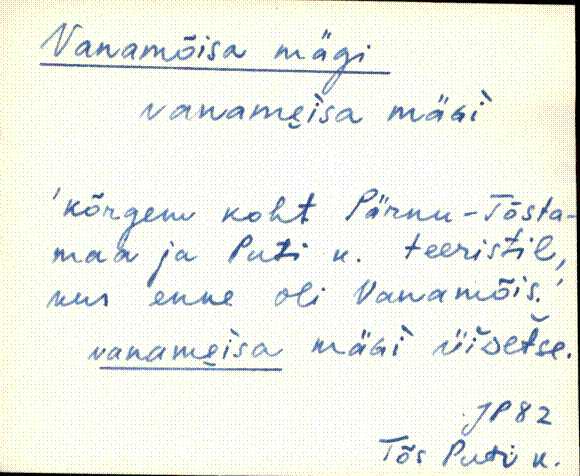 Vanamõisa mägi
vanamẹìsa mäɢì
'kõrgem koht Pärnu-Tõsta-
maa ja Puti k. teeristil,
kus enne oli Vanamõis.'
vanamẹìsa mäɢì
JP82
Tõs Puti k.